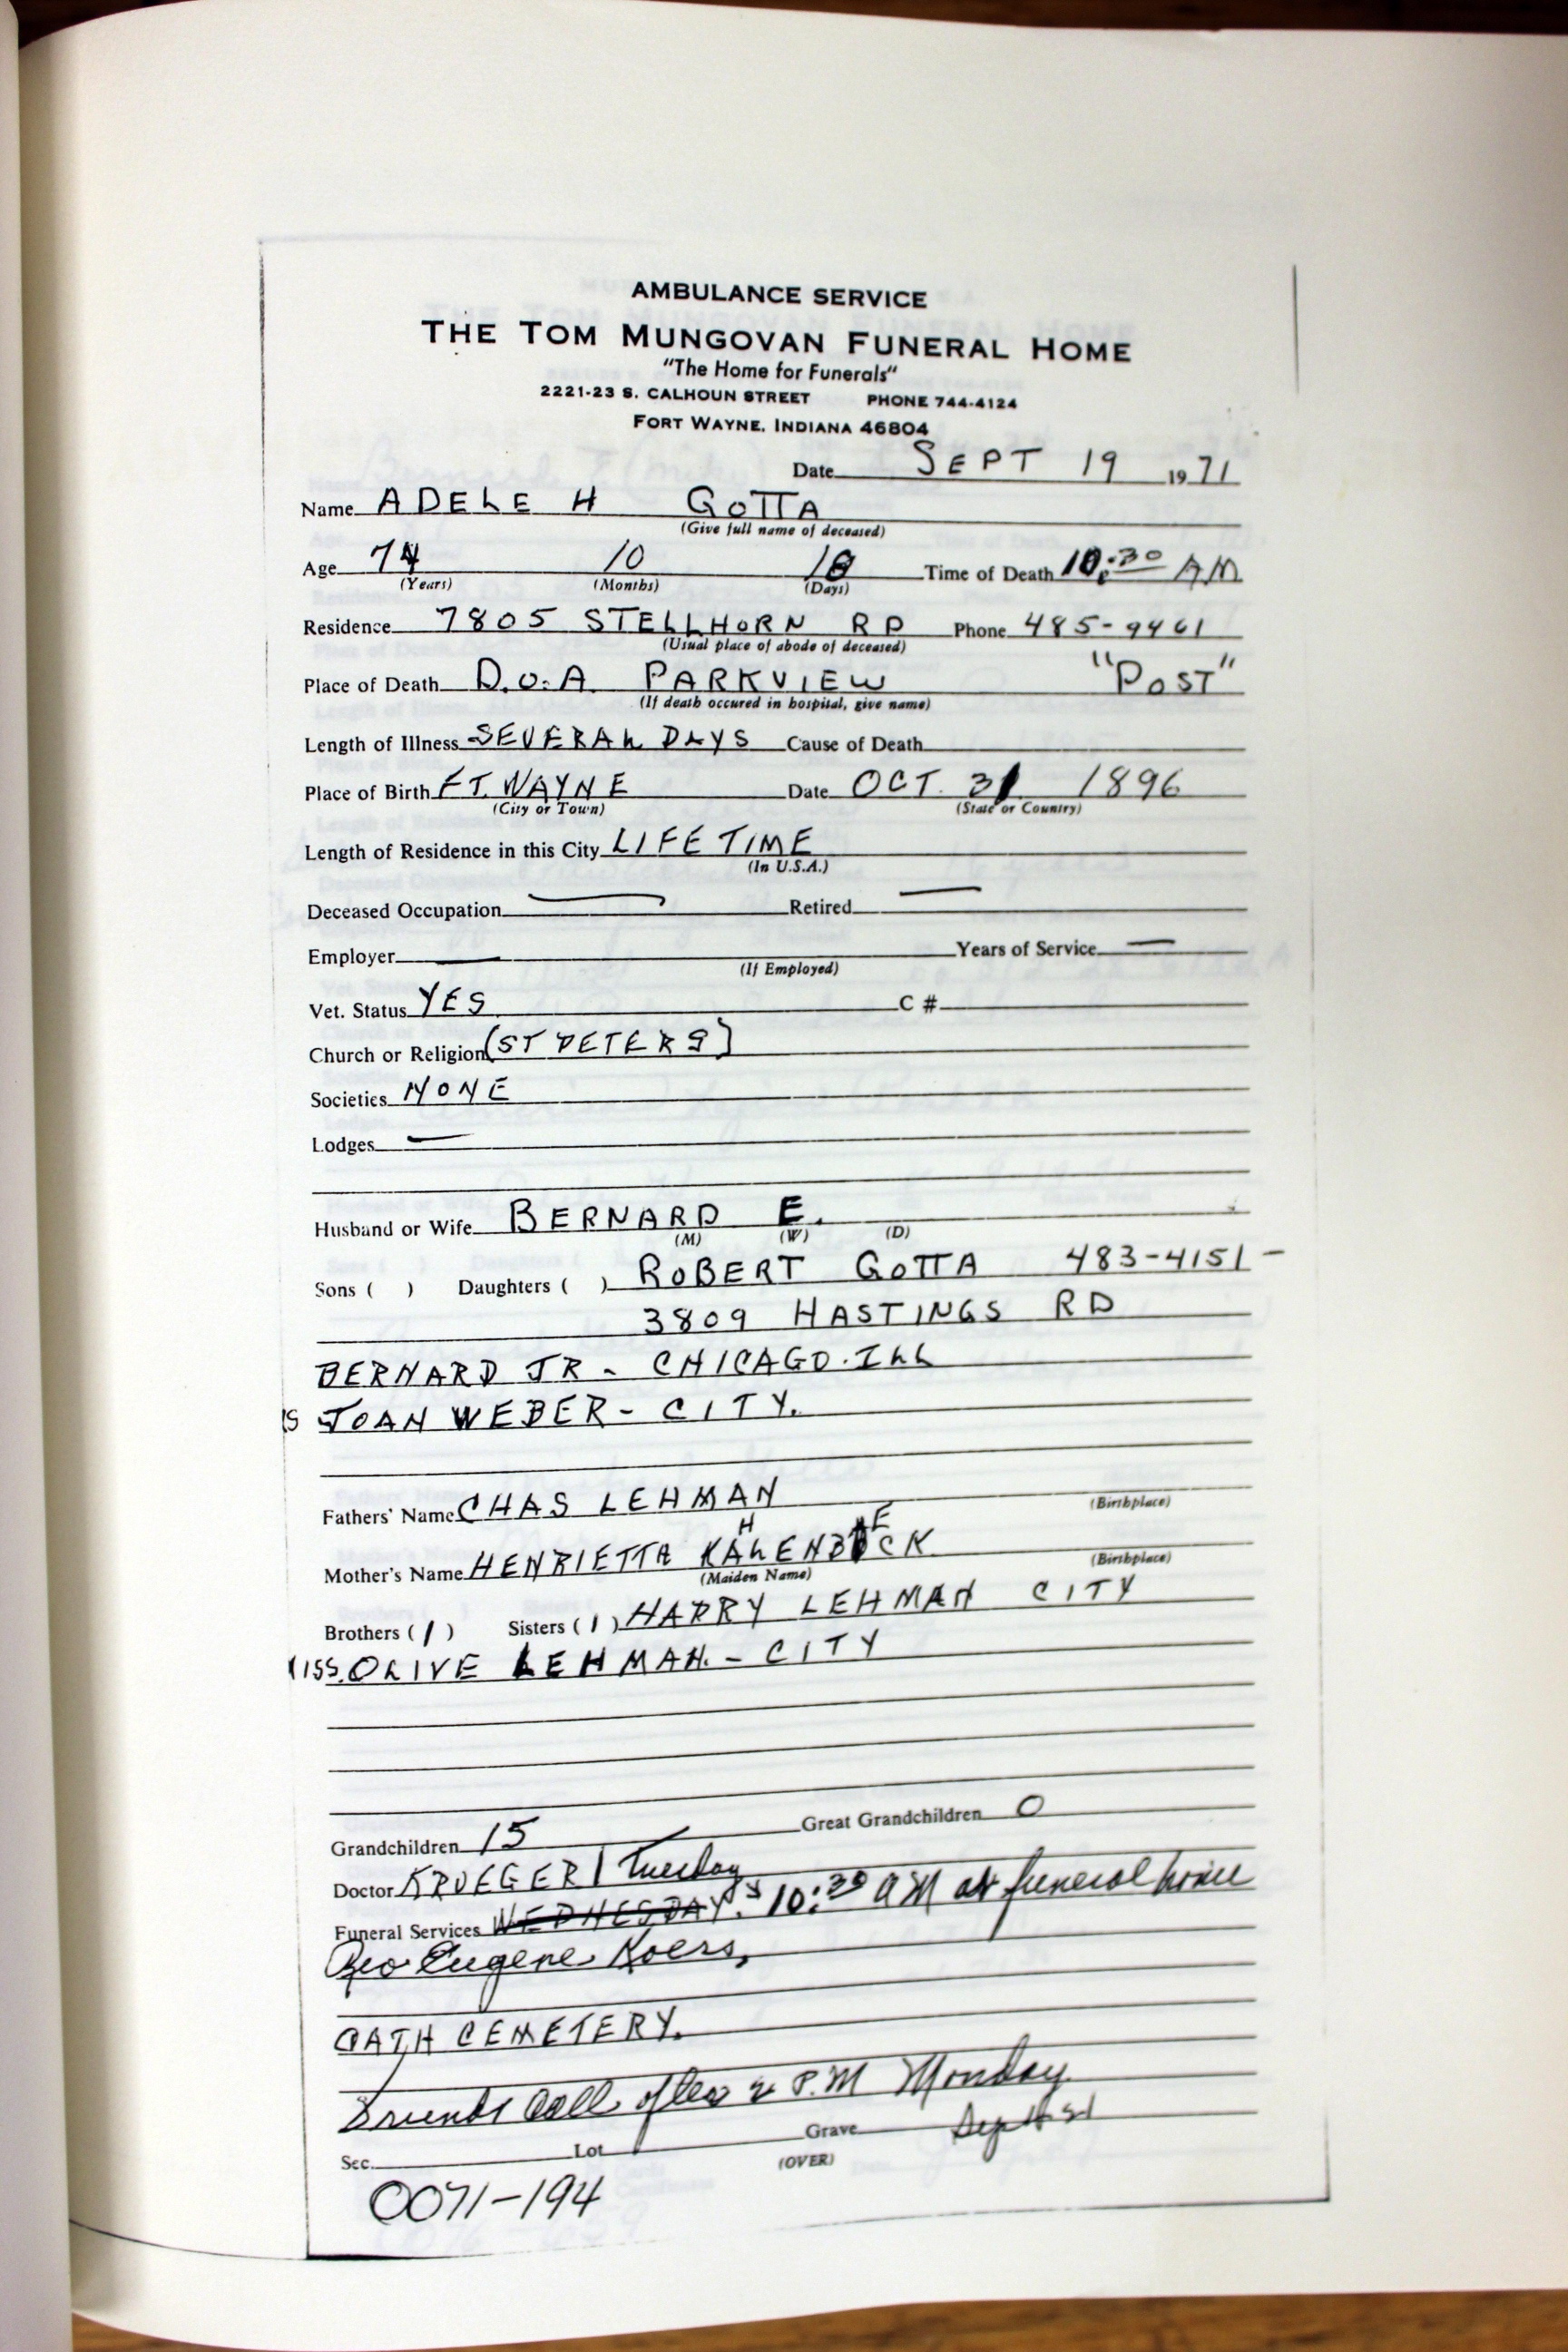 AMBULANCE SERVICE
THE TOM MUNGOVAN FUNERAL HOME
"The Home for Funerals"
2221-23 S. CALHOUN STREET PHONE 744-4124
FORT WAYNE, INDIANA 46804
Date SEPT 19 1971
Name ADELE H GOTTA
(Give full name of deceased)
Age 74 10 18 Time of Death 10:30 AM
(Years) (Months) (Days)
Residence 7805 STELLHORN RD Phone 485-9461
(Usual place of abode of deceased)
Place of Death D.O.A. PARKVIEW "POST"
(If death occured in hospital, give name)
Length of Illness SEVERAL DAYS Cause of Death
Place of Birth FT. WAYNE Date OCT. 31 1896
(City or Town) (State or Country)
Length of Residence in this City LIFE TIME
(In U.S.A.)
Deceased Occupation — Retired —
Employer — Years of Service —
(If Employed)
Vet. Status YES C #
Church or Religion (ST PETERS)
Societies NONE
Lodges —
Husband or Wife BERNARD E.
(M) (W) (D)
Sons ( ) Daughters ( ) ROBERT GOTTA 483-4151 -
3809 HASTINGS RD
BERNARD JR - CHICAGO. ILL
S JOAN WEBER - CITY.
Fathers' Name CHAS LEHMAN (Birthplace)
Mother's Name HENRIETTA KAHLENBECK (Birthplace)
(Maiden Name)
Brothers ( 1 ) Sisters ( 1 ) HARRY LEHMAN CITY
ISS. OLIVE LEHMAN. - CITY
Grandchildren 15 Great Grandchildren 0
Doctor KRUEGER Tuesday
Funeral Services WEDNESDAY. 10:30 AM at funeral home
Eugene Koers,
CATH CEMETERY.
Friends Call after 2 P.M Monday
Sec. Lot Grave Sept 21
(OVER)
0071-194